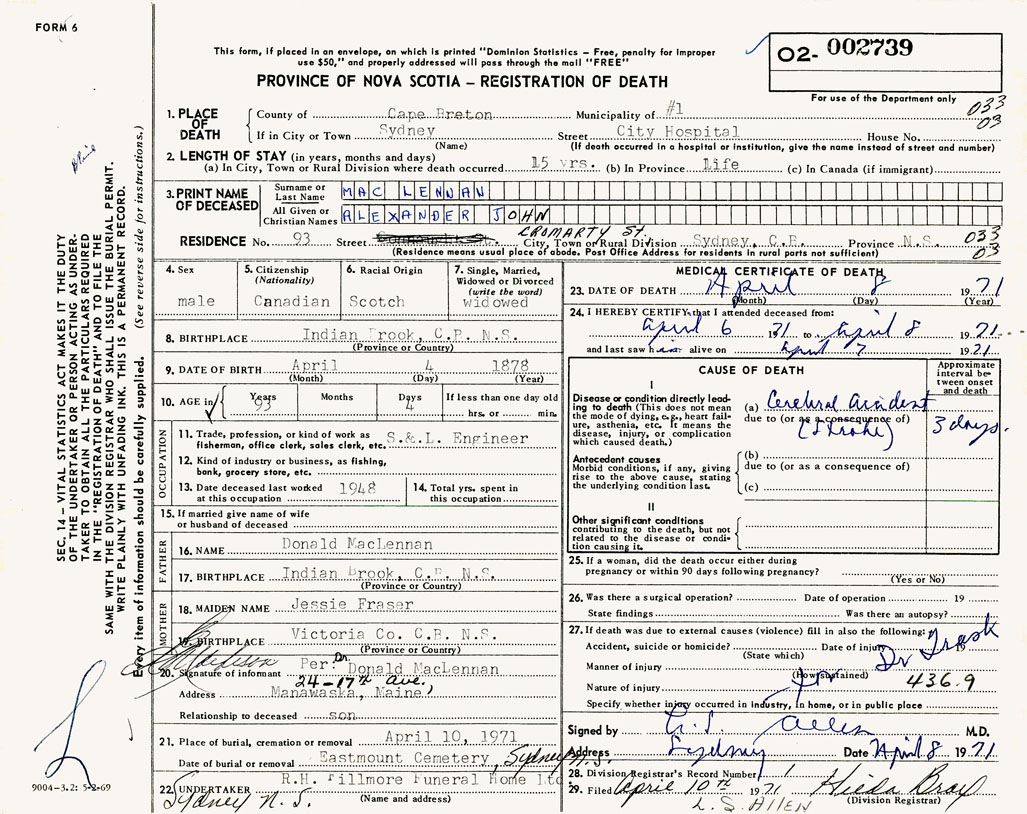 FORM 6
This form, if placed in an envelope, on which is printed "Dominion Statistics – Free, penalty for improper
use $50," and properly addressed will pass through the mail "FREE"
PROVINCE OF NOVA SCOTIA – REGISTRATION OF DEATH
02- 002739
For use of the Department only
033
03
1. PLACE OF DEATH
County of Cape Breton Municipality of #1
If in City or Town Sydney Street City Hospital House No.
(Name) (If death occurred in a hospital or institution, give the name instead of street and number)
2. LENGTH OF STAY (in years, months and days)
(a) In City, Town or Rural Division where death occurred 15 yrs. (b) In Province Life (c) In Canada (if immigrant)
3. PRINT NAME OF DECEASED
Surname or Last Name MAC LENNAN
All Given or Christian Names ALEXANDER JOHN
CROMARTY ST.
RESIDENCE No. 93 Street City, Town or Rural Division Sydney, C.B. Province N.S.
033
03
(Residence means usual place of abode. Post Office Address for residents in rural parts not sufficient)
4. Sex
male
5. Citizenship (Nationality)
Canadian
6. Racial Origin
Scotch
7. Single, Married, Widowed or Divorced (write the word)
widowed
8. BIRTHPLACE Indian Brook, C.B. N.S.
(Province or Country)
9. DATE OF BIRTH April 4 1878
(Month) (Day) (Year)
10. AGE in Years Months Days If less than one day old
93 4 hrs. or min.
OCCUPATION
11. Trade, profession, or kind of work as S.&L. Engineer
fisherman, office clerk, sales clerk, etc.
12. Kind of industry or business, as fishing,
bank, grocery store, etc.
13. Date deceased last worked at this occupation 1948
14. Total yrs. spent in this occupation
15. If married give name of wife
or husband of deceased
FATHER
16. NAME Donald MacLennan
17. BIRTHPLACE Indian Brook, C.B. N.S.
(Province or Country)
MOTHER
18. MAIDEN NAME Jessie Fraser
19. BIRTHPLACE Victoria Co. C.B. N.S.
(Province or Country)
20. Signature of informant Per: Dr. Donald MacLennan
24-17th Ave.
Address Manawaska, Maine
Relationship to deceased son
21. Place of burial, cremation or removal April 10, 1971
Date of burial or removal Eastmount Cemetery, Sydney N.S.
22. UNDERTAKER R.H. Fillmore Funeral Home Ltd
Sydney N.S. (Name and address)
MEDICAL CERTIFICATE OF DEATH
23. DATE OF DEATH April 8 1971
(Month) (Day) (Year)
24. I HEREBY CERTIFY that I attended deceased from:
April 6 1971 to April 8 1971
and last saw him alive on April 7 1971
CAUSE OF DEATH
Approximate interval between onset and death
I
Disease or condition directly leading to death (This does not mean the mode of dying, e.g., heart failure, asthenia, etc. It means the disease, injury, or complication which caused death.)
(a) Cerebral Accident
due to (or as a consequence of)
(Stroke)
3 days.
Antecedent causes
Morbid conditions, if any, giving rise to the above cause, stating the underlying condition last.
(b)
due to (or as a consequence of)
(c)
II
Other significant conditions
contributing to the death, but not related to the disease or condition causing it.
25. If a woman, did the death occur either during
pregnancy or within 90 days following pregnancy?
(Yes or No)
26. Was there a surgical operation? Date of operation 19
State findings Was there an autopsy?
27. If death was due to external causes (violence) fill in also the following:
Accident, suicide or homicide? Date of injury 19
(State which)
Dr Trask
Manner of injury
(How sustained)
for
Nature of injury 436.9
Specify whether injury occurred in industry, in home, or in public place
Signed by Allen M.D.
Address Sydney Date April 8 1971
28. Division Registrar's Record Number 1
29. Filed April 10th 1971 Hilda Bray
(Division Registrar)
L.S. ALLEN
SEC. 14 – VITAL STATISTICS ACT MAKES IT THE DUTY
OF THE UNDERTAKER OR PERSON ACTING AS UNDER-
TAKER TO OBTAIN ALL THE PARTICULARS REQUIRED
IN THE "REGISTRATION OF DEATH" AND TO FILE THE
SAME WITH THE DIVISION REGISTRAR WHO SHALL ISSUE THE BURIAL PERMIT.
WRITE PLAINLY WITH UNFADING INK. THIS IS A PERMANENT RECORD.
Every item of information should be carefully supplied. (See reverse side for instructions.)
9004-3.2: 5-2-69